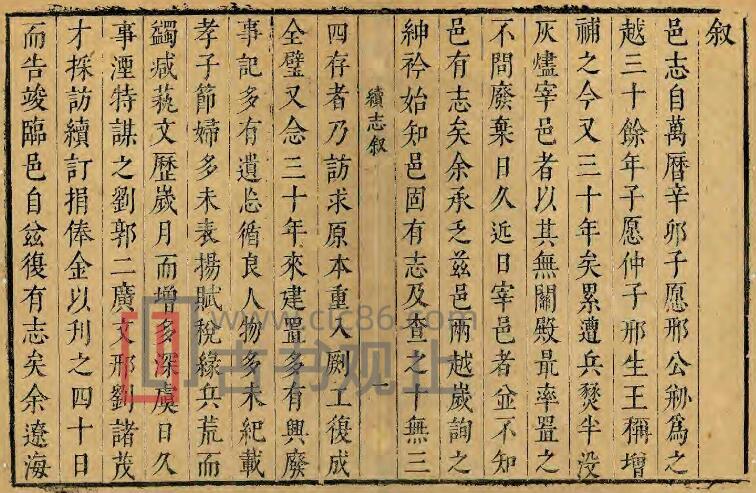 叙
邑志自萬曆辛卯子愿邢公刱爲之
越三十餘年子愿仲子邢生王稱增
補之今又三十年矣累遭兵燹半没
灰燼宰邑者以其無關殿最率置之
不問廢棄日久近日宰邑者並不知
邑有志矣余承乏茲邑兩越嵗詢之
紳衿始知邑固有志及查之十無三
續志叙
一
四存者乃訪求原本重入劂工復成
全璧又念三十年來建置多有興廢
事記多有遺忘循良人物多未紀載
孝子節婦多未表揚賦稅緣兵荒而
蠲减藝文歷嵗月而增多深虞日久
事湮特謀之劉郭二廣文邢劉諸茂
才採訪續訂捐俸金以刊之四十日
而告竣臨邑自茲復有志矣余遼海
www.clc86.com
古书观止